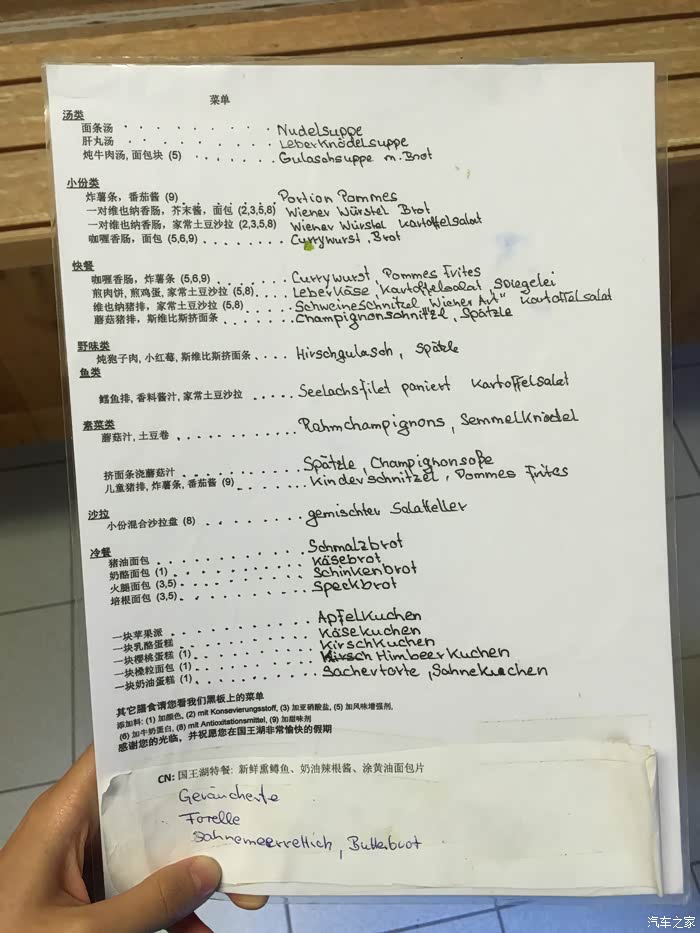 菜单
汤类
面条汤 . . . . . . . . . . Nudelsuppe
肝丸汤 . . . . . . . . . . Leberknödelsuppe
炖牛肉汤, 面包块 (5) . . . . . . . Gulaschsuppe m. Brot
小份类
炸薯条，番茄酱 (9) . . . . . . . . . . Portion Pommes
一对维也纳香肠，芥末酱，面包 (2,3,5,8) Wiener Würstel Brot
一对维也纳香肠，家常土豆沙拉 (2,3,5,8) Wiener Würstel Kartoffelsalat
咖喱香肠，面包 (5,6,9) . . . . . . . . Currywurst, Brot
快餐
咖喱香肠，炸薯条 (5,6,9) . . . . . . . . Currywurst, Pommes Frites
煎肉饼, 煎鸡蛋, 家常土豆沙拉 (5,8) . . . . Leberkäse, Kartoffelsalat Spiegelei
维也纳猪排，家常土豆沙拉 (5,8) . . . . . Schweineschnitzel „Wiener Art" Kartoffelsalat
蘑菇猪排，斯维比斯挤面条 . . . . . . . Champignonschnitzl, Spätzle
野味类
炖狍子肉, 小红莓, 斯维比斯挤面条 . . . . Hirschgulasch, Spätzle
鱼类
鳕鱼排, 香料酱汁, 家常土豆沙拉 . . . . . Seelachsfilet paniert Kartoffelsalat
素菜类
蘑菇汁, 土豆卷 . . . . . . . . . . . . Rahmchampignons, Semmelknödel
挤面条浇蘑菇汁 . . . . . . . . . . Spätzle, Champignonsoße
儿童猪排, 炸薯条, 番茄酱 (9) . . . . . . Kinderschnitzel, Pommes Frites
沙拉
小份混合沙拉盘 (8) . . . . . . . . . . gemischter Salatteller
冷餐
猪油面包 . . . . . . . . . . . . Schmalzbrot
奶酪面包 (1) . . . . . . . . . . Käsebrot
火腿面包 (3,5) . . . . . . . . . Schinkenbrot
培根面包 (3,5) . . . . . . . . . Speckbrot
一块苹果派 . . . . . . . . . . . Apfelkuchen
一块乳酪蛋糕 . . . . . . . . . . Käsekuchen
一块樱桃蛋糕 (1) . . . . . . . . Kirschkuchen
一块榛粒面包 (1) . . . . . . . . Himbeerkuchen
一块奶油蛋糕 (1) . . . . . . . . Sachertorte, Sahnekuchen
其它膳食请您看我们黑板上的菜单
添加料: (1) 加颜色, (2) mit Konsevierungsstoff, (3) 加亚硝酸盐, (5) 加风味增强剂,
(6) 加牛奶蛋白, (8) mit Antioxitationsmittel, (9) 加甜味剂
感谢您的光临，并祝愿您在国王湖非常愉快的假期
CN: 国王湖特餐: 新鲜熏鳟鱼、奶油辣根酱、涂黄油面包片
Geräucherte
Forelle
Sahnemeerrettich, Butterbrot
汽车之家